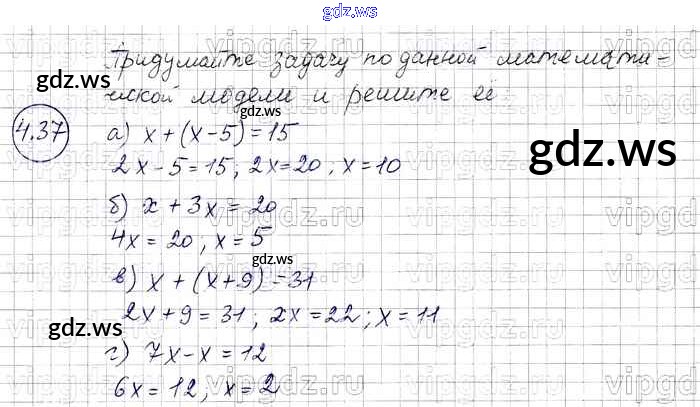 gdz.ws
Придумайте задачу по данной математи-
ческой модели и решите её
gdz.ws
4.37
а) x + (x - 5) = 15
2x - 5 = 15; 2x = 20; x = 10
gdz.ws
б) x + 3x = 20
gdz.ws
4x = 20; x = 5
gdz.ws
в) x + (x + 9) = 31
2x + 9 = 31; 2x = 22; x = 11
gdz.ws
г) 7x - x = 12
6x = 12, x = 2
gdz.ws
vipgdz.ru